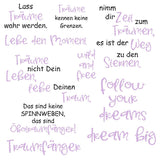 Lass
Träume
wahr werden.
Träume
kennen keine
Grenzen.
nimm
dir Zeit
zum
Träumen,
es ist der Weg
zu den
Sternen.
Lebe den Moment
Träume
nicht Dein
Leben,
lebe Deinen
Traum
wild
and
free
Das sind keine
SPINNWEBEN,
das sind
Traumfänger.
follow
your
dreams
dream big